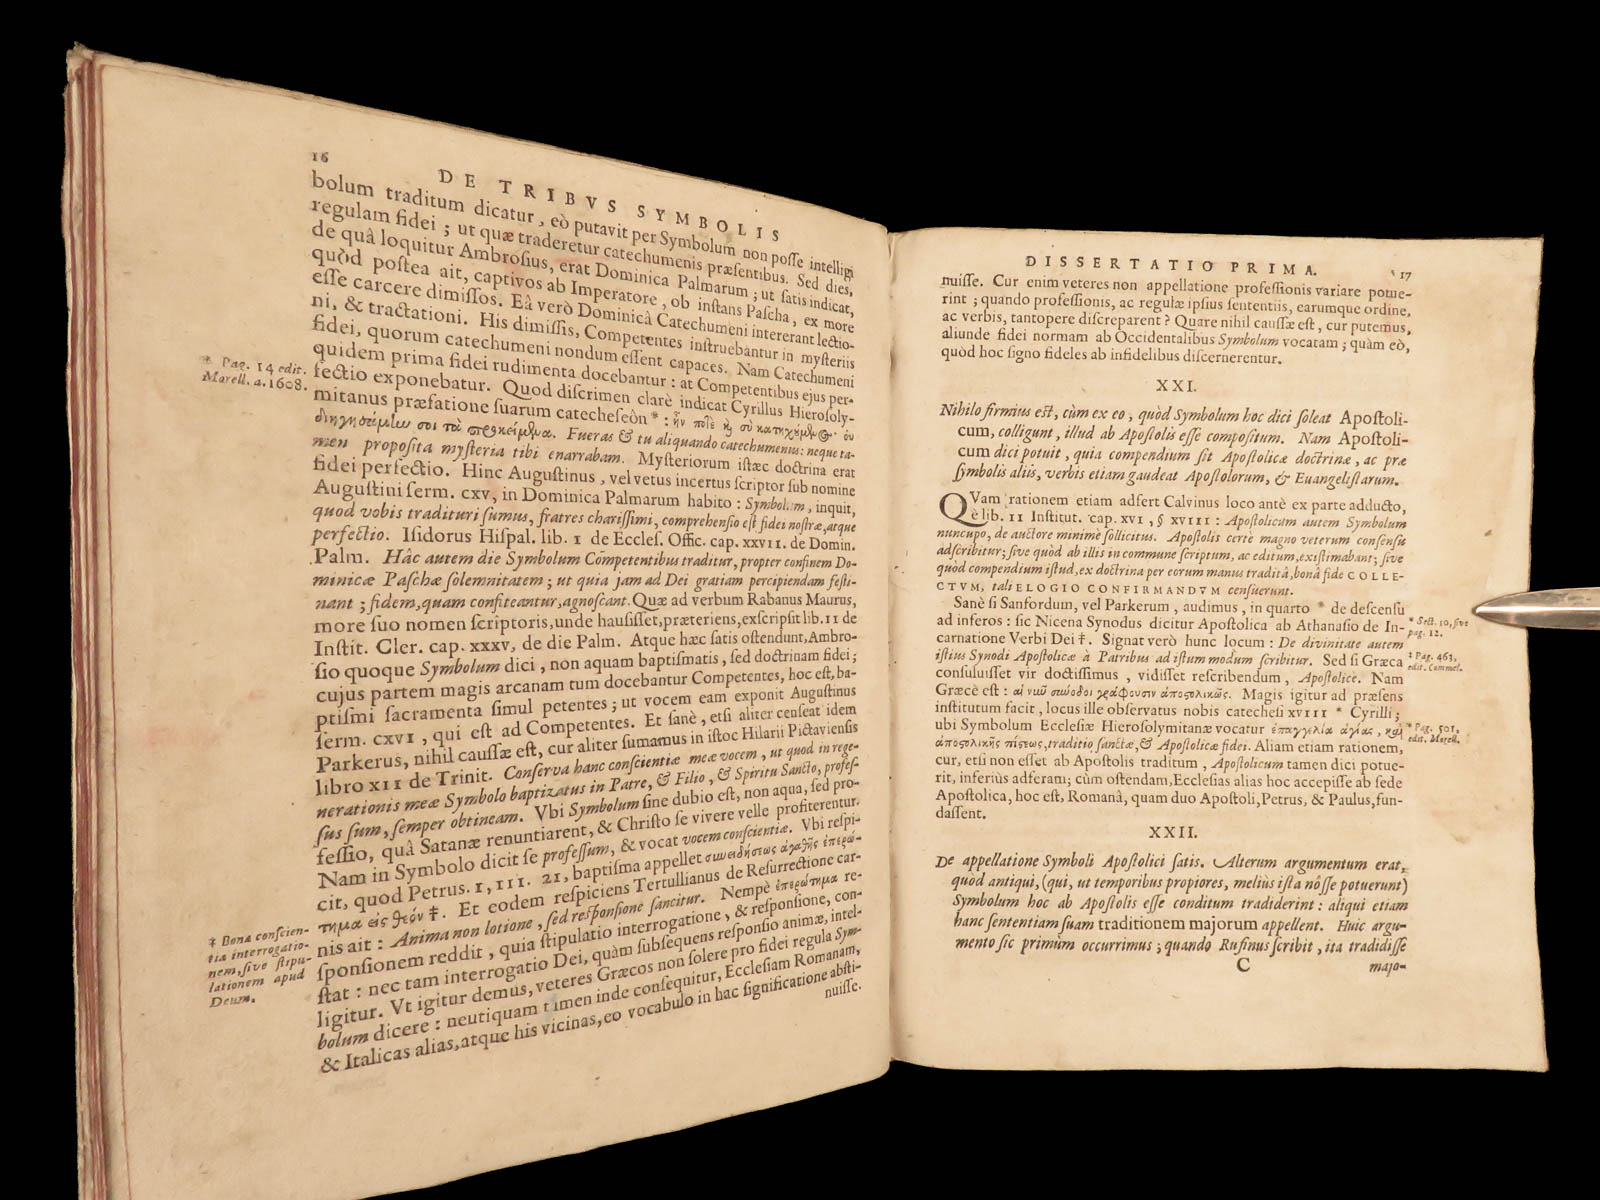 16
DE TRIBVS SYMBOLIS
bolum traditum dicatur, eò putavit per Symbolum non posse intelligi
regulam fidei; ut quæ traderetur catechumenis præsentibus. Sed dies,
de quâ loquitur Ambrosius, erat Dominica Palmarum; ut satis indicat,
quòd postea ait, captivos ab Imperatore, ob instans Pascha, ex more
esse carcere dimissos. Eâ verò Dominicâ Catechumeni intererant lectio-
ni, & tractationi. His dimissis, Competentes instruebantur in mysteriis
fidei, quorum catechumeni nondum essent capaces. Nam Catechumeni
quidem prima fidei rudimenta docebantur: at Competentibus ejus per-
fectio exponebatur. Quod discrimen clarè indicat Cyrillus Hierosoly-
mitanus præfatione suarum catecheseôn *: ἦν ποτε ἢ σὺ κατηχούμενος· οὐ
διηγησάμεθά σοι τὰ προκείμενα. Fueras & tu aliquando catechumenus: neque ta-
men proposita mysteria tibi enarrabam. Mysteriorum istæc doctrina erat
fidei perfectio. Hinc Augustinus, vel vetus incertus scriptor sub nomine
Augustini serm. CXV, in Dominica Palmarum habito: Symbolum, inquit,
quod vobis tradituri sumus, fratres charissimi, comprehensio est fidei nostræ, atque
perfectio. Isidorus Hispal. lib. I de Eccles. Offic. cap. XXVII. de Domin.
Palm. Hâc autem die Symbolum Competentibus traditur, propter confinem Do-
minicæ Paschæ solemnitatem; ut quia jam ad Dei gratiam percipiendam festi-
nant; fidem, quam confiteantur, agnoscant. Quæ ad verbum Rabanus Maurus,
more suo nomen scriptoris, unde hausisset, præteriens, exscripsit lib. II de
Instit. Cler. cap. XXXV, de die Palm. Atque hæc satis ostendunt, Ambro-
sio quoque Symbolum dici, non aquam baptismatis, sed doctrinam fidei;
cujus partem magis arcanam tum docebantur Competentes, hoc est, ba-
ptismi sacramenta simul petentes; ut vocem eam exponit Augustinus
serm. CXVI, qui est ad Competentes. Et sanè, etsi aliter censeat idem
Parkerus, nihil caussæ est, cur aliter sumamus in istoc Hilarii Pictaviensis
libro XII de Trinit. Conserva hanc conscientiæ meæ vocem, ut quod in rege-
nerationis meæ Symbolo baptizatus in Patre, & Filio, & Spiritu Sancto, profes-
sus sum, semper obtineam. Vbi Symbolum sine dubio est, non aqua, sed pro-
fessio, quâ Satanæ renuntiarent, & Christo se vivere velle profiterentur.
Nam in Symbolo dicit se professum, & vocat vocem conscientiæ. Vbi respi-
cit, quod Petrus. I, III. 21, baptisma appellet συνειδήσεως ἀγαθῆς ἐπερώ-
τημα εἰς θεόν ‡. Et eodem respiciens Tertullianus de Resurrectione car-
nis ait: Anima non lotione, sed responsione sancitur. Nempè ἐπερώτημα re-
sponsionem reddit, quia stipulatio interrogatione, & responsione, con-
stat: nec tam interrogatio Dei, quàm subsequens responsio animæ, intel-
ligitur. Vt igitur demus, veteres Græcos non solere pro fidei regula Sym-
bolum dicere: neutiquam tamen inde consequitur, Ecclesiam Romanam,
& Italicas alias, atque his vicinas, eo vocabulo in hac significatione absti-
nuisse.
* Pag. 14 edit.
Morell. a. 1608.
‡ Bonæ conscien-
tiæ interrogatio-
nem, sive stipu-
lationem apud
Deum.
DISSERTATIO PRIMA. 17
nuisse. Cur enim veteres non appellatione professionis variare potue-
rint; quando professionis, ac regulæ ipsius sententiis, earumque ordine,
ac verbis, tantopere discreparent? Quare nihil caussæ est, cur putemus,
aliunde fidei normam ab Occidentalibus Symbolum vocatam; quàm eò,
quòd hoc signo fideles ab infidelibus discernerentur.
XXI.
Nihilo firmius est, cùm ex eo, quòd Symbolum hoc dici soleat Apostoli-
cum, colligunt, illud ab Apostolis esse compositum. Nam Apostoli-
cum dici potuit, quia compendium sit Apostolicæ doctrinæ, ac præ
symbolis aliis, verbis etiam gaudeat Apostolorum, & Euangelistarum.
QVam rationem etiam adfert Calvinus loco antè ex parte adducto,
è lib. II Institut. cap. XVI, § XVIII: Apostolicum autem Symbolum
nuncupo, de auctore minimè sollicitus. Apostolis certè magno veterum consensu
adscribitur; sive quòd ab illis in commune scriptum, ac editum, existimabant; sive
quòd compendium istud, ex doctrina per eorum manus traditâ, bonâ fide COLLE-
CTVM, tali ELOGIO CONFIRMANDVM censuerunt.
Sanè si Sanfordum, vel Parkerum, audimus, in quarto * de descensu
ad inferos: sic Nicena Synodus dicitur Apostolica ab Athanasio de In-
carnatione Verbi Dei ‡. Signat verò hunc locum: De divinitate autem
istius Synodi Apostolicæ à Patribus ad istum modum scribitur. Sed si Græca
consuluisset vir doctissimus, vidisset rescribendum, Apostolicè. Nam
Græcè est: αἱ νῦν σύνοδοι γράφουσιν ἀποστολικῶς. Magis igitur ad præsens
institutum facit, locus ille observatus nobis catechesi XVIII * Cyrilli;
ubi Symbolum Ecclesiæ Hierosolymitanæ vocatur ἐπαγγελία ἁγίας, καὶ
ἀποστολικῆς πίστεως, traditio sanctæ, & Apostolicæ fidei. Aliam etiam rationem,
cur, etsi non esset ab Apostolis traditum, Apostolicum tamen dici potue-
rit, inferiùs adferam; cùm ostendam, Ecclesias alias hoc accepisse ab sede
Apostolica, hoc est, Romanâ, quam duo Apostoli, Petrus, & Paulus, fun-
dassent.
* Sect. 10, sive
pag. 12.
‡ Pag. 463,
edit. Commel.
* Pag. 501,
edit. Morell.
XXII.
De appellatione Symboli Apostolici satis. Alterum argumentum erat,
quòd antiqui, (qui, ut temporibus propiores, meliùs ista nôsse potuerunt)
Symbolum hoc ab Apostolis esse conditum tradiderint: aliqui etiam
hanc sententiam suam traditionem majorum appellent. Huic argu-
mento sic primùm occurrimus; quando Rufinus scribit, ita tradidisse
C majo-